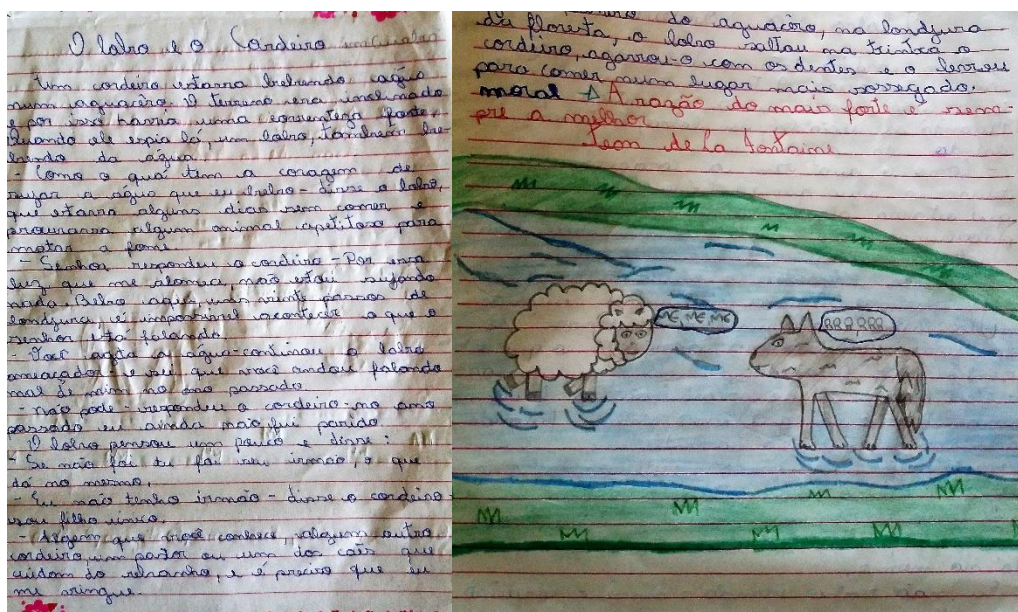 O lobo e o Cordeiro
Um cordeiro estava bebendo água
num aguacéro. O terreno era inclinado
e por isso havia uma correnteza forte,
quando ele espia lá, um lobo, também be-
bendo da água.
- Como o quá tem a coragem de
sujar a água que eu bebo - disse o lobo,
que estava alguns dias sem comer e
procurava algum animal apetitoso para
matar a fome
- Senhor respondeu o cordeiro - Por essa
luz que me alomea, não estou sujando
nada. Bebo aqui, uns vinte passos de
londjura é impossivel acontecer o que o
senhor está falando.
- Você agita a água - continou o lobo
ameaçador - e sei que você andou falando
mal de mim no ano passado
- não pode - respondeu o cordeiro - no ano
passado eu ainda não fui parido
O lobo pensou um pouco e disse:
- Se não foi tu foi seu irmão, o que
dá no mesmo.
- Eu não tenho irmão - disse o cordeiro -
sou filho único.
- Algem que você conhece, algum outro
cordeiro, um pastor ou um dos cães que
cuidam do rebanho, e é preciso que eu
me vringue.
do aguacéro, na londjura
da floresta, o lobo saltou na trinxa o
cordeiro, agarrou-o com os dentes e o levou
para comer num lugar mais sossegado.
moral A razão do mais forte é sem-
pre a melhor
Jean de La Fontaine
ME, ME, ME
RRRRRR